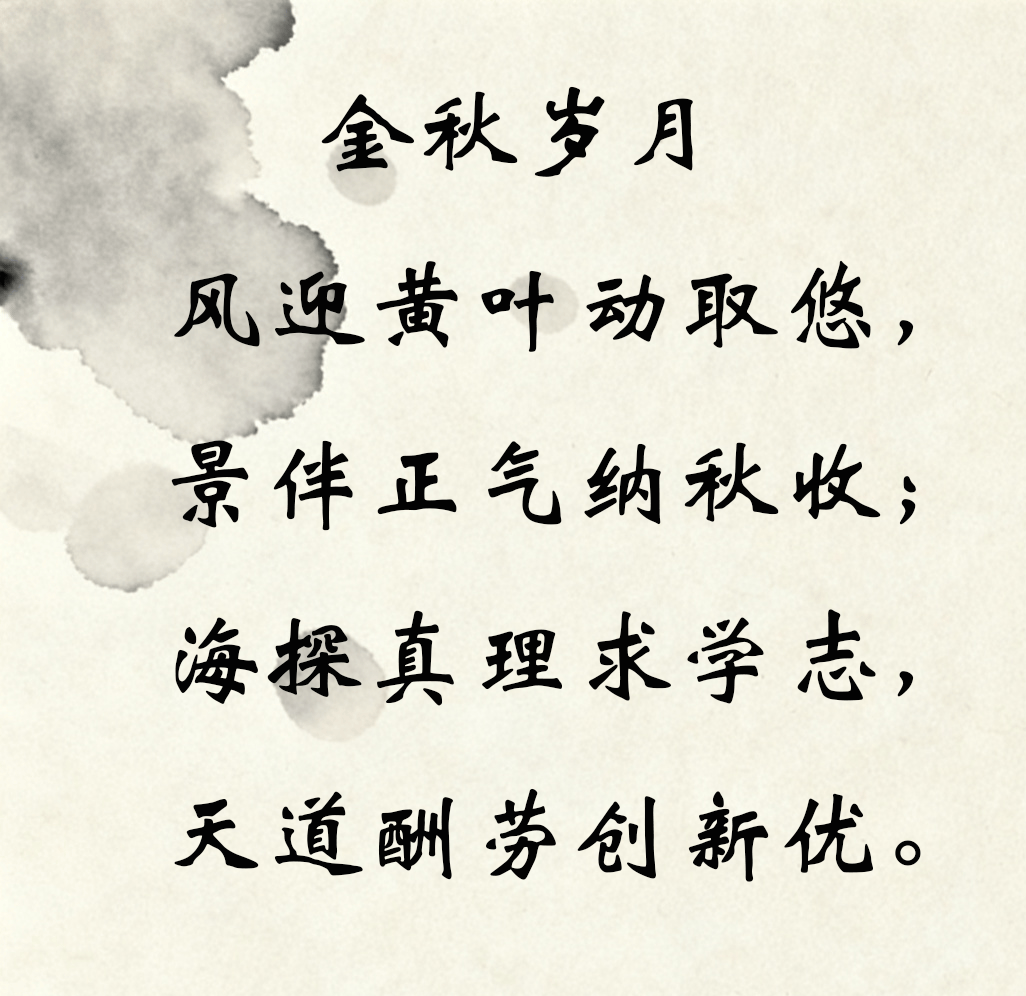 金秋岁月
风迎黄叶动取悠，
景伴正气纳秋收；
海探真理求学志，
天道酬劳创新优。